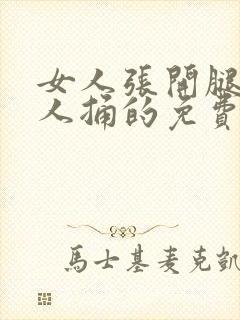 女人張開腿
人捅的免費
馬士基麥克凱